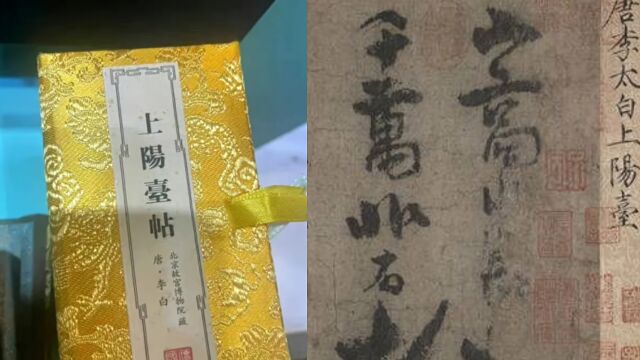 上陽臺帖
北京故宮博物院藏
唐·李白
唐李太白上陽臺
山高水長
千萬非有